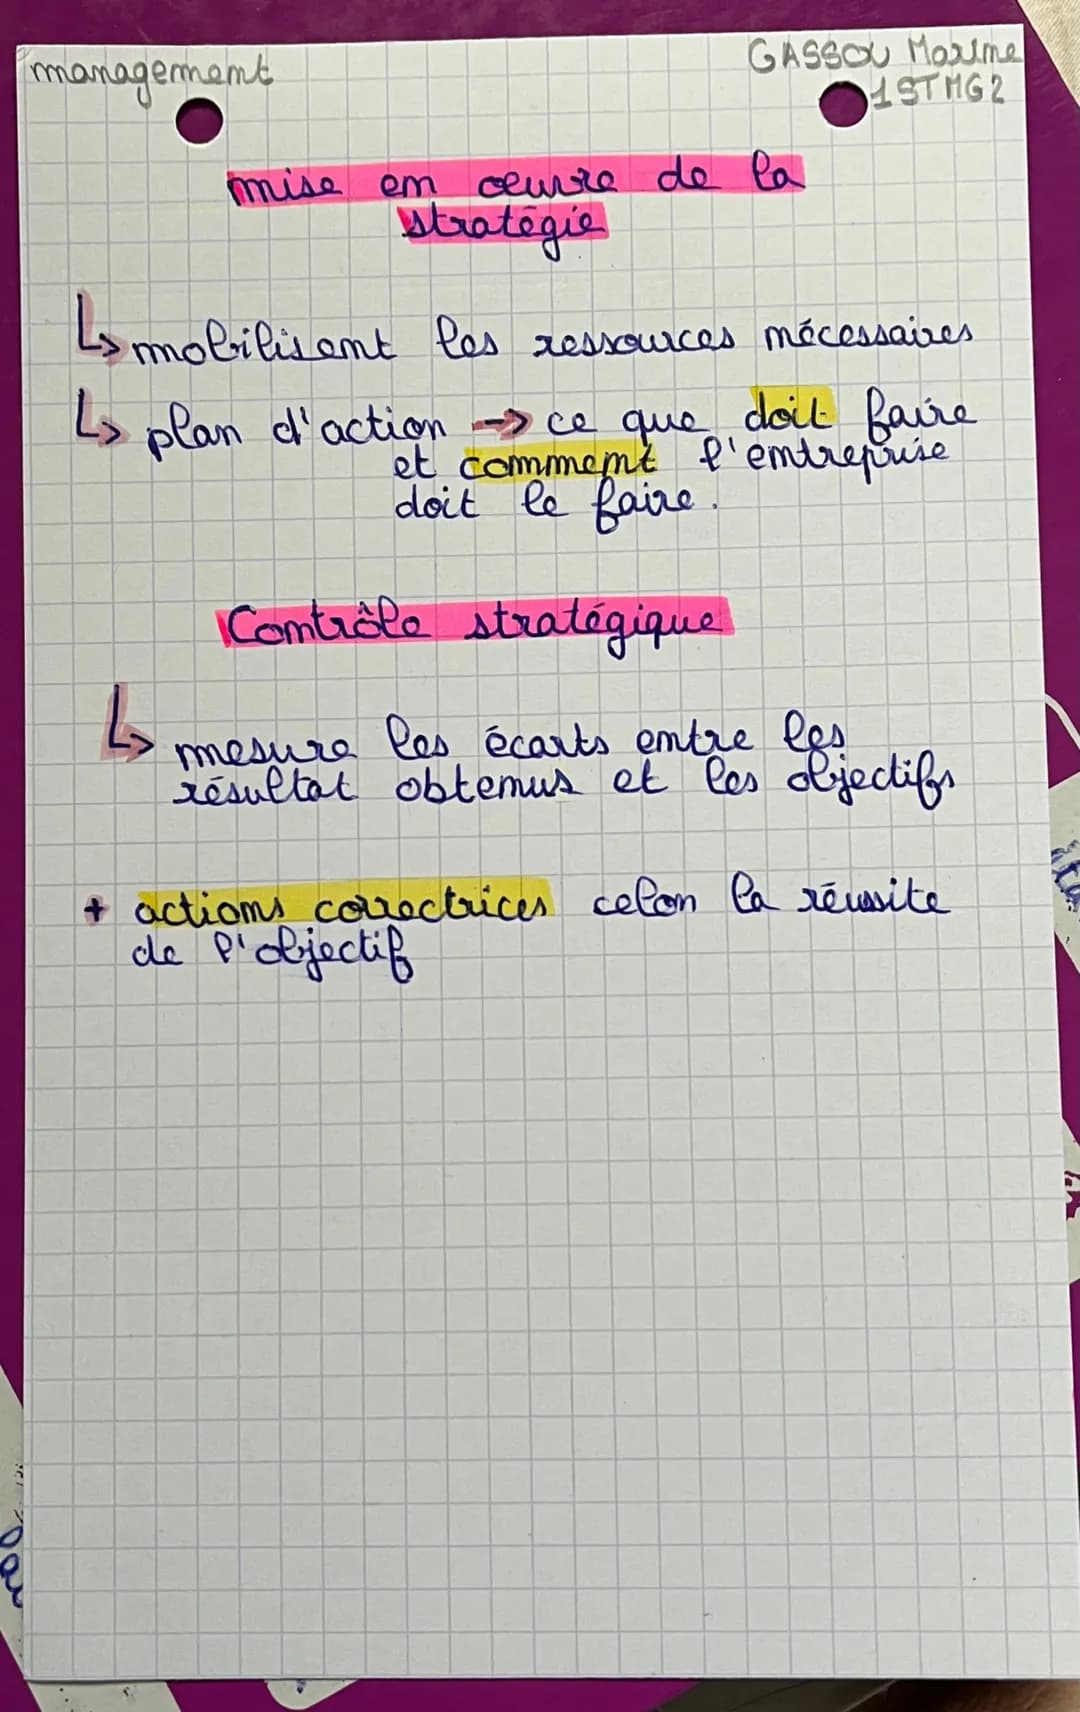 management
GASSOU Maxime
1STMG2
mise en œuvre de la
stratégie
↳ mobilisent les ressources nécessaires
↳ plan d'action → ce que doit faire
et comment l'entreprise
doit le faire.
Contrôle stratégique
↳ mesure les écarts entre les
résultat obtenus et les objectifs
+ actions correctrices celon la réussite
de l'objectif